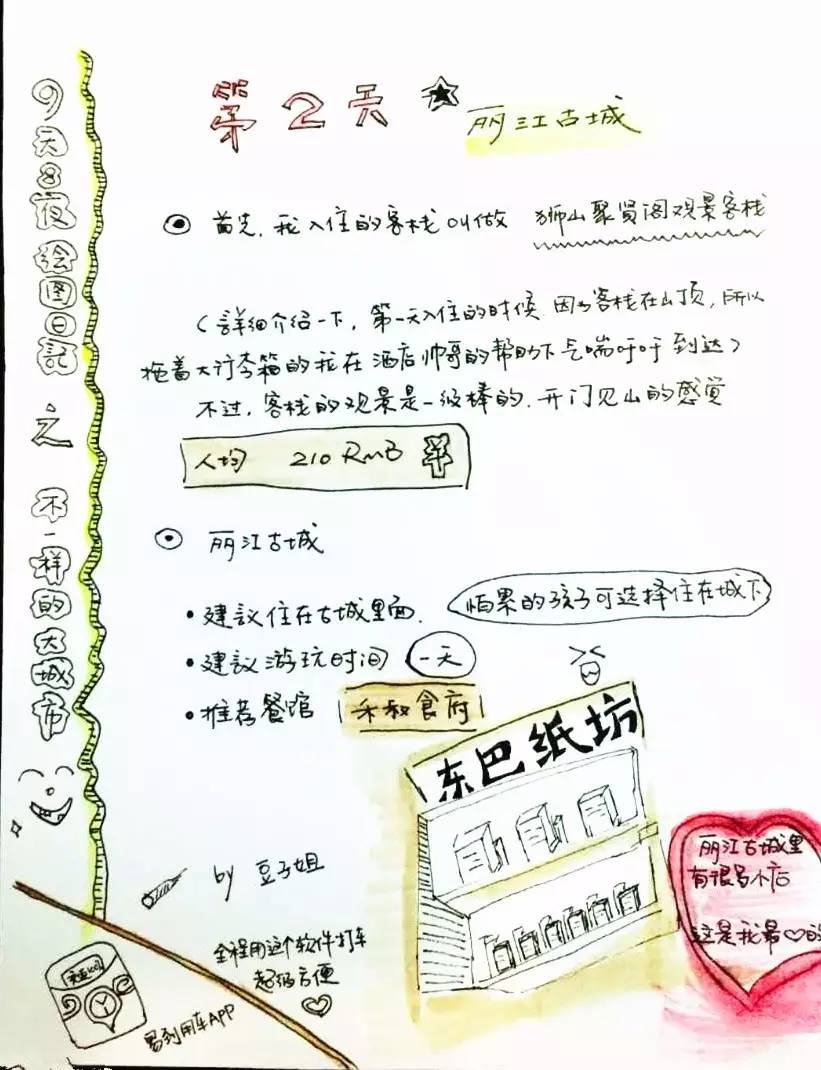 9天8夜绘图日記 之 不一样的大城市
第2天 ★ 丽江古城
首先,我入住的客栈叫做 狮山聚贤阁观景客栈
(詳细介绍一下,第一天入住的时候 因为客栈在山顶,所以
拖着大行李箱的我在酒店帅哥的帮助下气喘吁吁到达)
不过,客栈的观景是一级棒的,开门见山的感觉
人均 210 RmB
丽江古城
•建議住在古城里面. 怕累的孩子可选择住在城下
•建议游玩时间 一天
•推荐餐馆 禾叔食府
东巴纸坊
丽江古城里
有很多小店
这是我最♡的
by 豆子姐
全程用这个软件打车
超级方便
易到用车APP